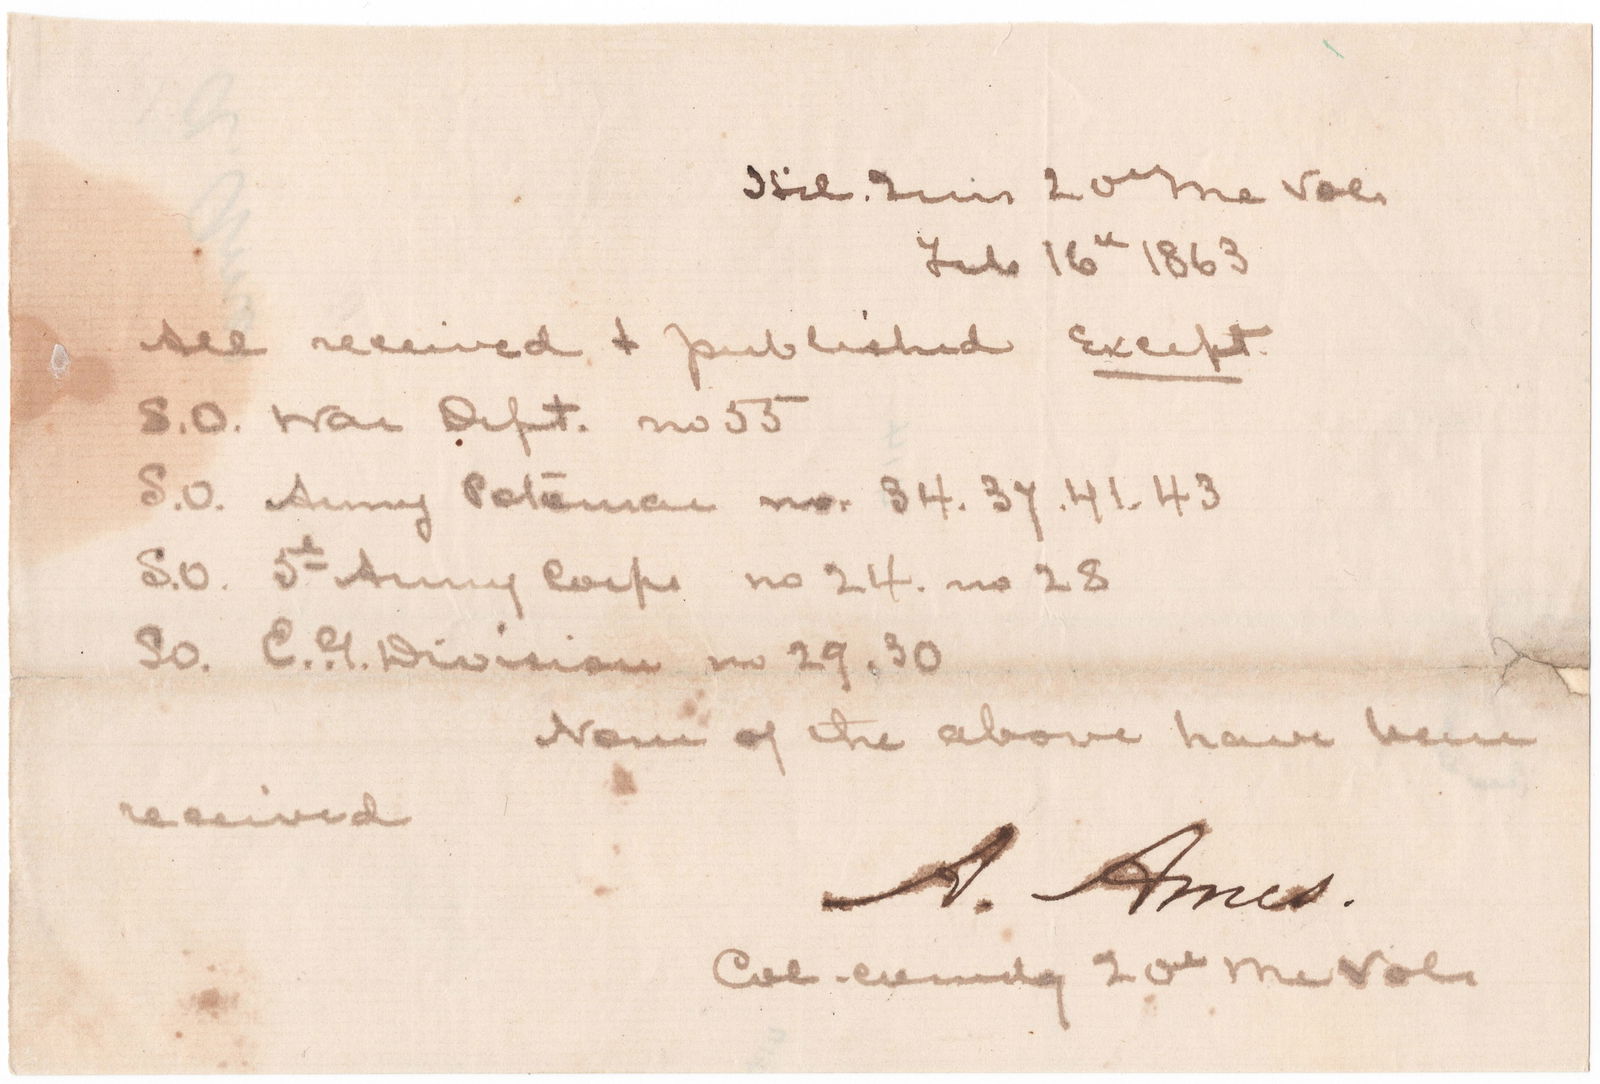 Hd. Qurs 20th Me Vols
Feb 16th 1863
All received & published Except.
S.O. War Dept. no 55
S.O. Army Potomac no. 34. 37. 41. 43
S.O. 5th Army Corps no 24. no 28
SO. C.G. Division no 29. 30
None of the above have been
received
A. Ames.
Col. comdg 20th Me Vols